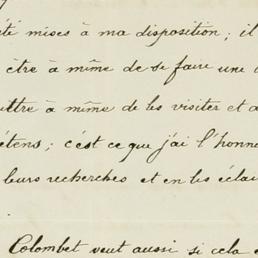 été mises à ma disposition; il
être à même de se faire une
ettre à même de les visiter et
étens; c'est ce que j'ai l'honne
leurs recherches et en les éclai
Colombet veut aussi si cela